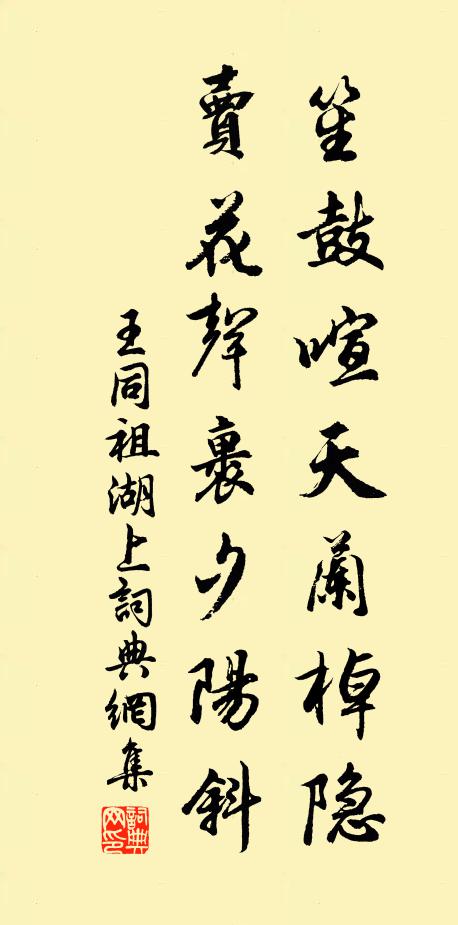 笙鼓喧天蘭棹隐
賣花聲裏夕陽斜
王同祖湖上詞典網集
詞典网印